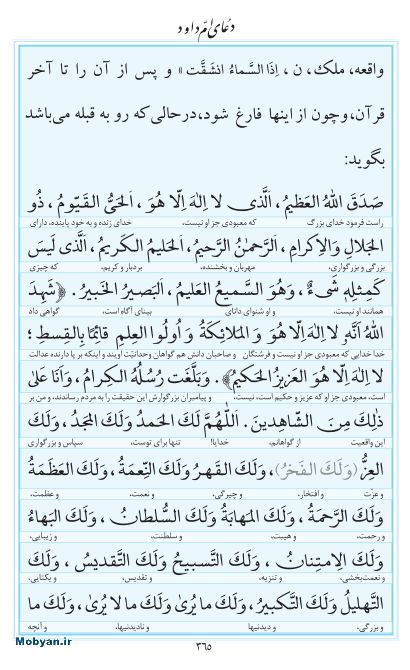 دعای امّ داود
واقعه، ملک، ن ، اِذَا السَّماءُ انشَقَّت » و پس از آن را تا آخر
قرآن،وچون از اینها فارغ شود،درحالی‌که رو به قبله می‌باشد
بگوید:
صَدَقَ اللّٰهُ العَظیمُ ، اَلَّذی لا اِلٰهَ اِلّا هُوَ ، اَلحَیُّ القَیّومُ ، ذُو
راست فرمود خدای بزرگ که معبودی جز او نیست، خدای زنده و به خود پاینده، دارای
الجَلالِ وَالاِکرامِ ، اَلرَّحمٰنُ الرَّحیمُ ، اَلحَلیمُ الکَریمُ ، اَلَّذی لَیسَ
بزرگی و بزرگواری، مهربان و بخشنده، بردبار و کریم، که چیزی
کَمِثلِهِ شَیءٌ ، وَهُوَ السَّمیعُ العَلیمُ ، اَلبَصیرُ الخَبیرُ . ﴿شَهِدَ
همانند او نیست، و او شنوای دانای بینای آگاه است، گواهی داد
اللّٰهُ اَنَّهُ لا اِلٰهَ اِلّا هُوَ وَ المَلائِکَةُ وَ اُولُوا العِلمِ قائِمًا بِالقِسطِ ؛
خدا خدایی که معبودی جز او نیست و فرشتگان و صاحبان دانش هم گواهان وحدانیّت اویند و اینکه بر پا دارنده عدالت
لا اِلٰهَ اِلّا هُوَ العَزیزُ الحَکیمُ﴾ . وَبَلَّغَت رُسُلُهُ الکِرامُ ، وَاَنَا عَلیٰ
است، معبودی جز او که عزیز و حکیم است، نیست، و پیامبران بزرگوارش این حقیقت را به مردم رساندند، و من بر
ذٰلِكَ مِنَ الشّاهِدینَ . اَللّٰهُمَّ لَكَ الحَمدُ وَلَكَ المَجدُ ، وَلَكَ
این واقعیت از گواهانم، خدایا! تنها برای توست، سپاس و بزرگواری
العِزُّ (وَلَكَ الفَخرُ) ، وَلَكَ القَهرُ وَلَكَ النِّعمَةُ ، وَلَكَ العَظَمَةُ
و عزّت و افتخار. و چیرگی، و نعمت، و عظمت،
وَلَكَ الرَّحمَةُ ، وَلَكَ المَهابَةُ وَلَكَ السُّلطانُ ، وَلَكَ البَهاءُ
و رحمت، و هیبت، و سلطنت، و زیبایی،
وَلَكَ الاِمتِنانُ ، وَلَكَ التَّسبیحُ وَلَكَ التَّقدیسُ ، وَلَكَ
و نعمت‌بخشی، و تنزیه، و تقدیس، و یکتایی،
التَّهلیلُ وَلَكَ التَّکبیرُ ، وَلَكَ ما یُریٰ وَلَكَ ما لا یُریٰ ، وَلَكَ ما
و بزرگی. و دیدنیها و نادیدنیها، و آنچه
۳۶۵
Mobyan.ir